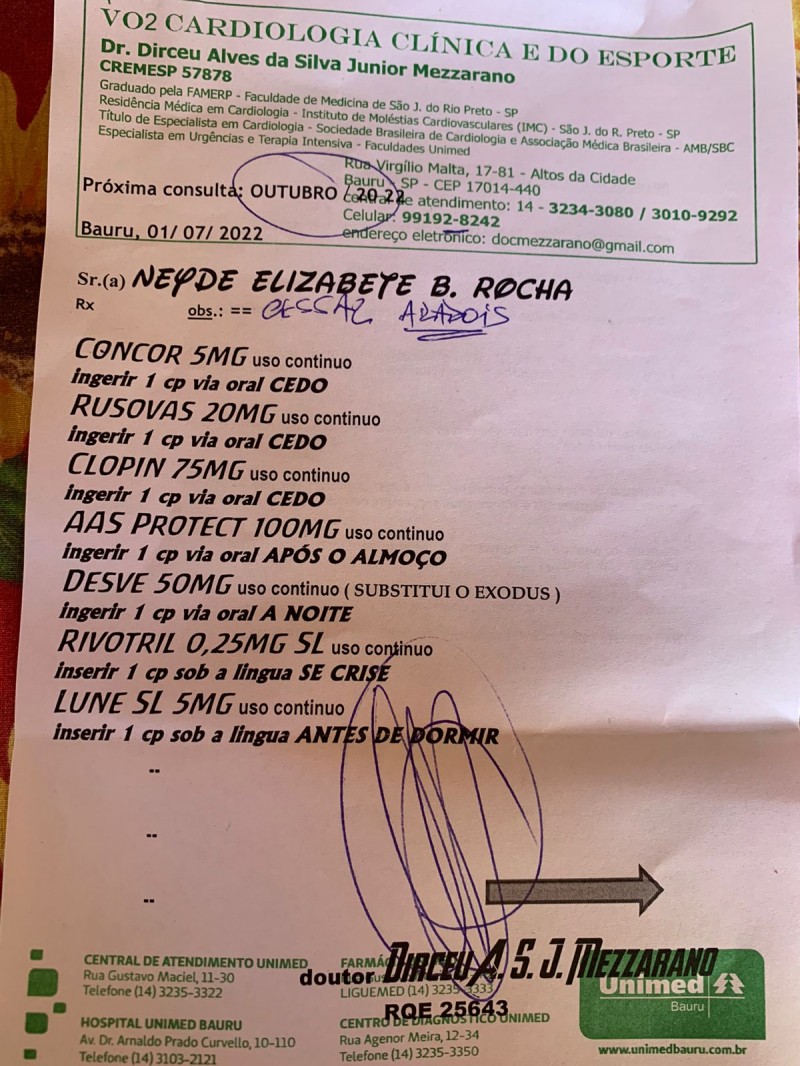 VO2 CARDIOLOGIA CLÍNICA E DO ESPORTE
Dr. Dirceu Alves da Silva Junior Mezzarano
CREMESP 57878
Graduado pela FAMERP - Faculdade de Medicina de São J. do Rio Preto - SP
Residência Médica em Cardiologia - Instituto de Moléstias Cardiovasculares (IMC) - São J. do R. Preto - SP
Título de Especialista em Cardiologia - Sociedade Brasileira de Cardiologia e Associação Médica Brasileira - AMB/SBC
Especialista em Urgências e Terapia Intensiva - Faculdades Unimed
Rua Virgílio Malta, 17-81 - Altos da Cidade
Bauru - SP - CEP 17014-440
Próxima consulta: OUTUBRO / 2022
central de atendimento: 14 - 3234-3080 / 3010-9292
Celular: 99192-8242
Bauru, 01/ 07/ 2022
endereço eletrônico: docmezzarano@gmail.com
Sr.(a) NEYDE ELIZABETE B. ROCHA
Rx obs.: == CESSAR ARADOIS
CONCOR 5MG uso continuo
ingerir 1 cp via oral CEDO
RUSOVAS 20MG uso continuo
ingerir 1 cp via oral CEDO
CLOPIN 75MG uso continuo
ingerir 1 cp via oral CEDO
AAS PROTECT 100MG uso continuo
ingerir 1 cp via oral APÓS O ALMOÇO
DESVE 50MG uso continuo ( SUBSTITUI O EXODUS )
ingerir 1 cp via oral A NOITE
RIVOTRIL 0,25MG SL uso continuo
inserir 1 cp sob a lingua SE CRISE
LUNE SL 5MG uso continuo
inserir 1 cp sob a lingua ANTES DE DORMIR
--
--
--
doutor DIRCEU A. S. J. MEZZARANO
RQE 25643
CENTRAL DE ATENDIMENTO UNIMED
Rua Gustavo Maciel, 11-30
Telefone (14) 3235-3322
HOSPITAL UNIMED BAURU
Av. Dr. Arnaldo Prado Curvello, 10-110
Telefone (14) 3103-2121
LIGUEMED (14) 3235-3333
CENTRO DE DIAGNÓSTICO UNIMED
Rua Agenor Meira, 12-34
Telefone (14) 3235-3350
Unimed
Bauru
www.unimedbauru.com.br